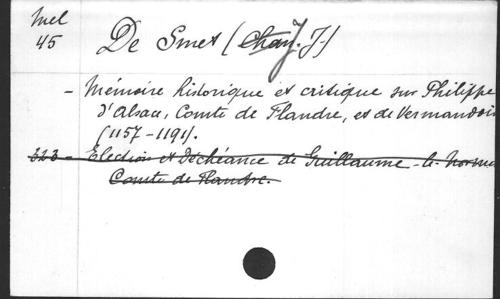 Mel
45
De Smet (J. J.)
- Mémoire historique et critique sur Philippe
d'Alsace, Comte de Flandre, et de Vermandois
(1157-1191).
323 - Election et déchéance de Guillaume-le-Norma
Comte de Flandre.